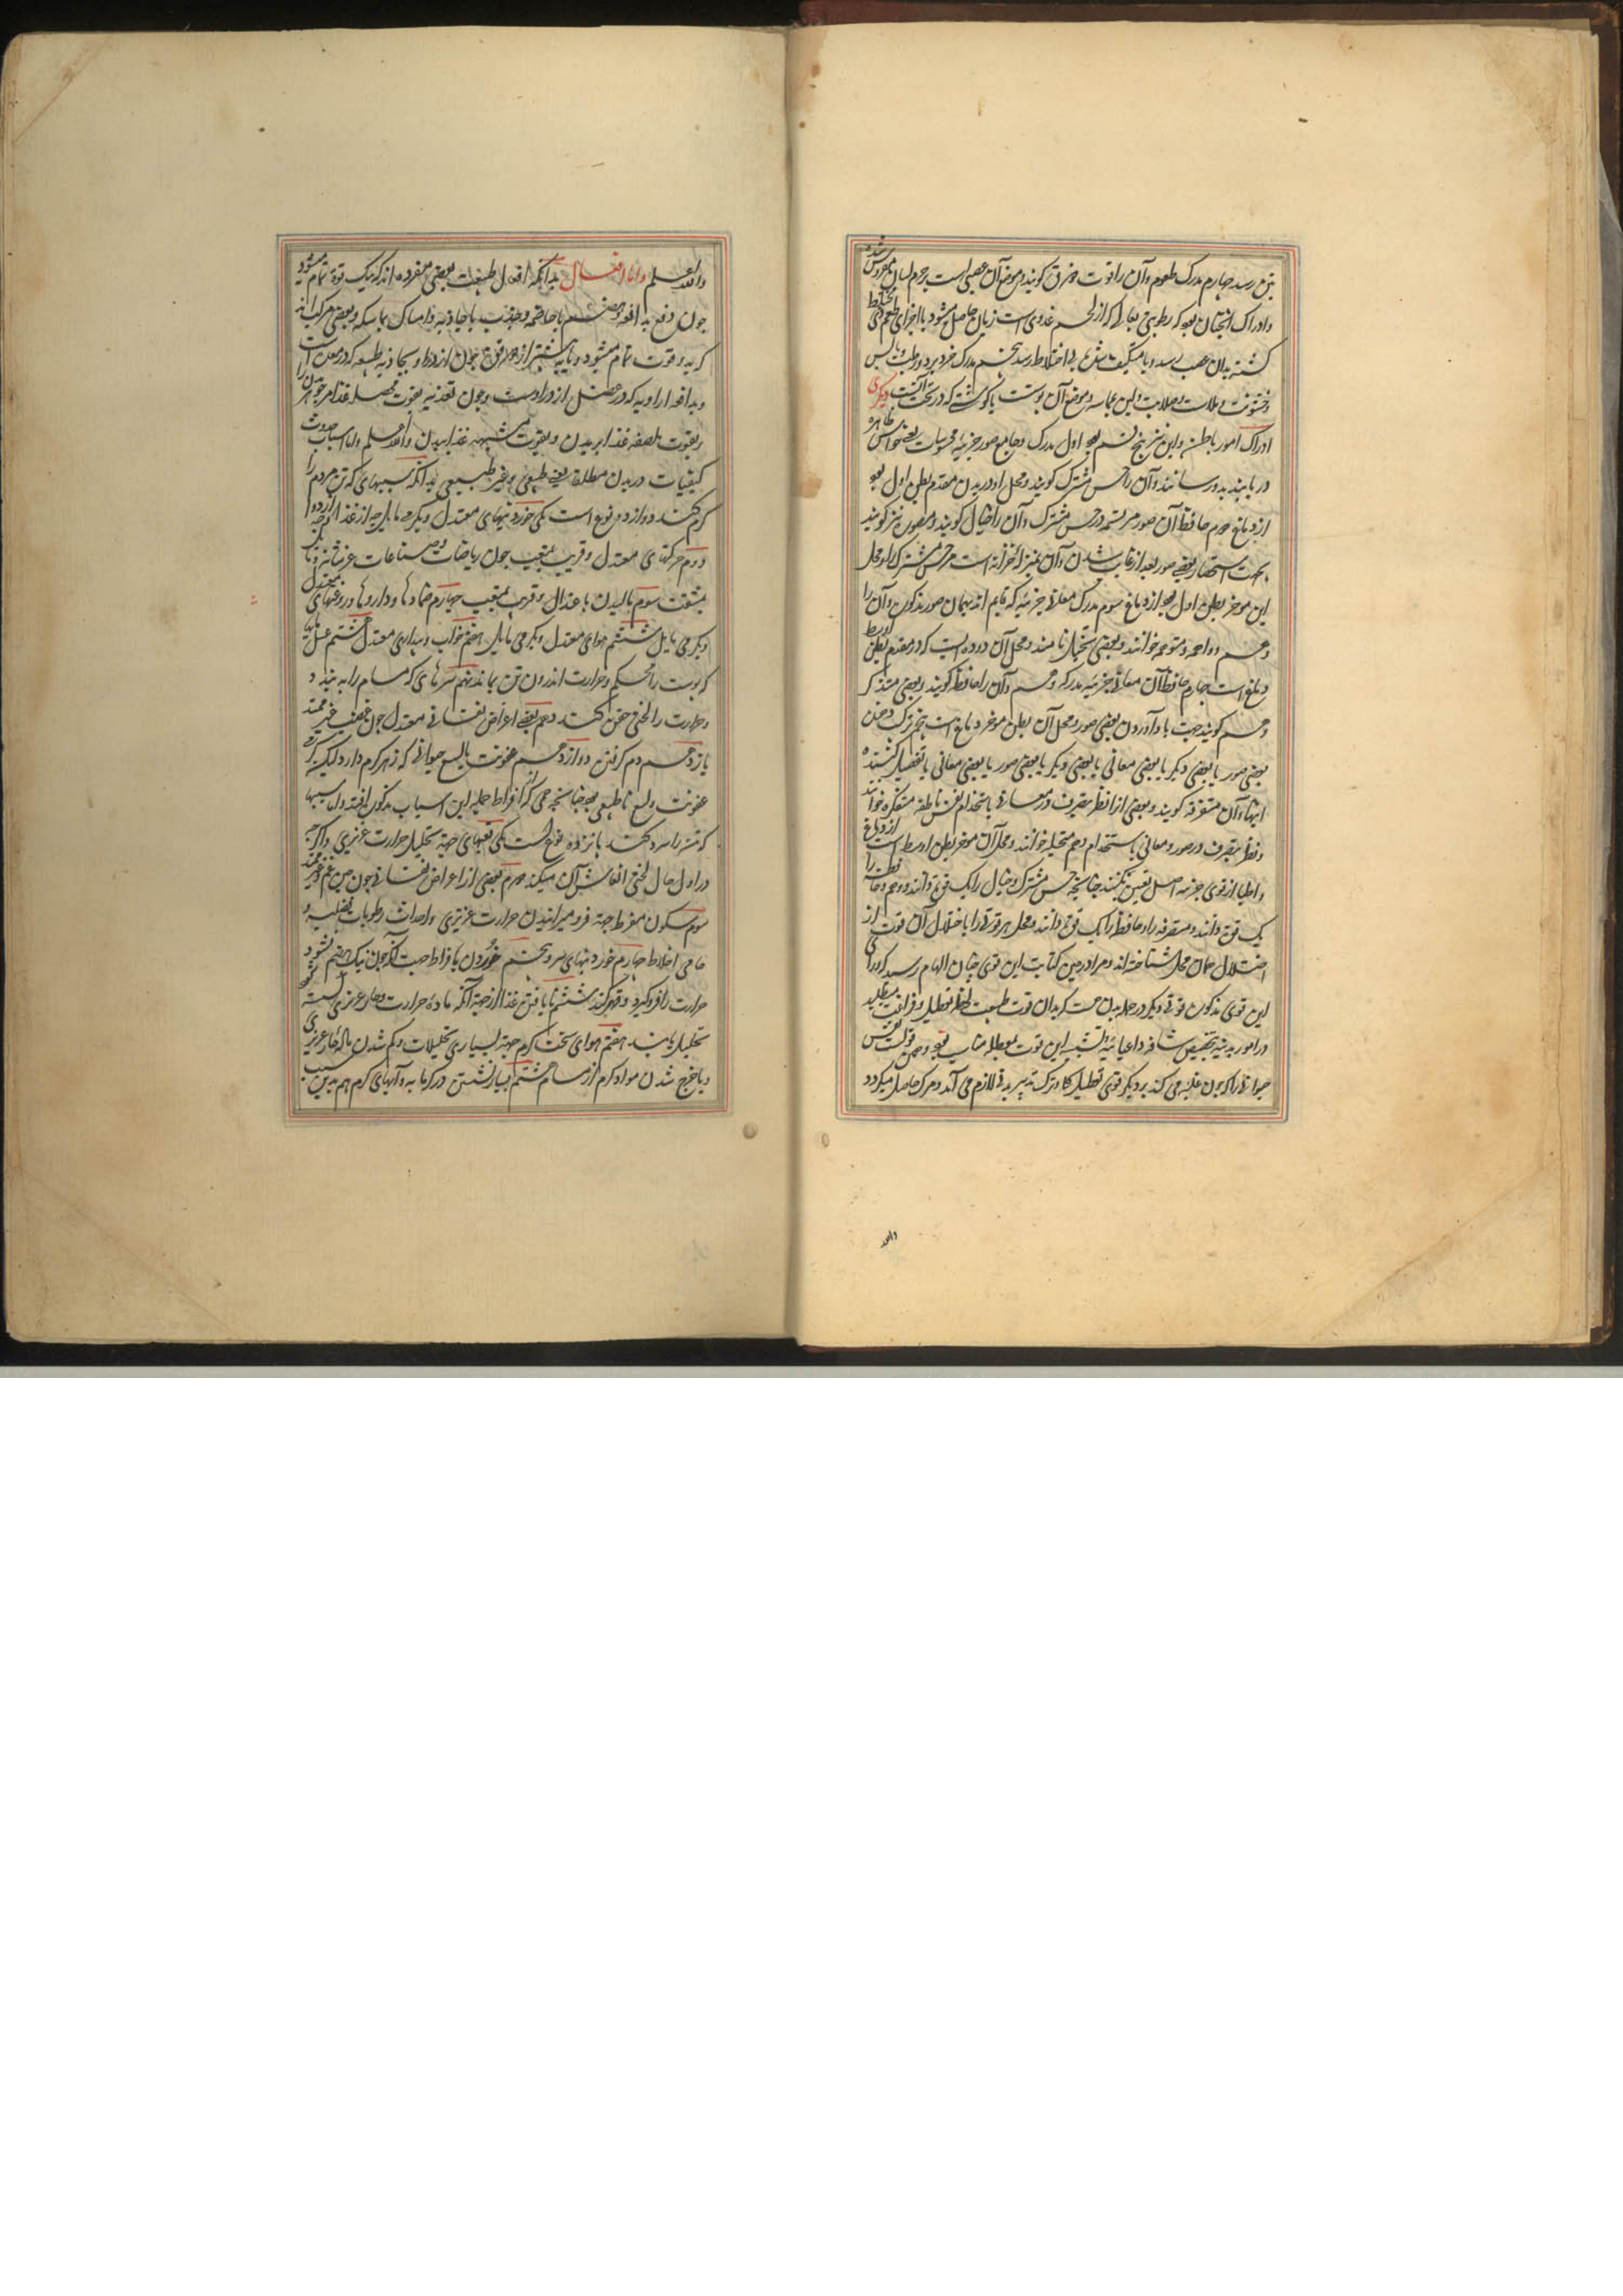 تن رسد چهارم مدرک طعوم و آن را قوت ذوق گویند و موضع آن عصبی است بر جرم لسان مفروش شده
و ادراک آنچنان بود که رطوبتی لعابی که از لحم غددی است زبان حاصل میشود با اجزای طعم مختلط
گشته بدان عصب رسد و یا متکیف شده بی اختلاط رسد پنجم مدرک حر و برد و رطب و یابس
و خشونت و ملاست و صلابت و لین بماسه و موضع آن پوست با گوشت که در تحت آنست دیگری
ادراک امور باطن و این نیز پنج قسم بود اول مدرک و جامع صور جزئیه محسوسات یعنی حواس ظاهره
دریابند بدو رسانند و آن را حس مشترک گویند و محل او در بدن مقدم بطن اول بود
از دماغ دوم حافظ آن صور مرتسمه در حس مشترک و آن را خیال گویند و مصوره نیز گویند
بجهت استحضار بعضی صور بعد از غایب شدن و آن بمنزله خزانه است مر حس مشترک را و محل
این موخر بطن اول بود از دماغ سوم مدرک معانی جزئیه که قایم اند بهمان صور مذکور و آن را
وهم و واهمه و متوهمه خوانند و بعضی متخیل نامند و محل آن دوده ایست که در مقدم بطن اوسط
دماغ است چهارم حافظ آن معانی جزئیه مدرکه وهم و آن را حافظه گویند و بعضی متذکر
وهم گویند جهت یاد آوردن بعضی صور و محل آن بطن موخر دماغ است پنجم ترکیب دهنده
بعضی صور با بعضی دیگر یا بعضی معانی با بعضی دیگر یا بعضی صور با بعضی معانی یا تفصیل کننده
اینها و آن متصرفه گویند و بعضی از انظر بتصرف در معانی باستخدام نفس ناطقه متفکره خوانند
و نظر بتصرف در صور و معانی باستخدام وهم متخیله خوانند و محل آن موخر بطن اوسط است از دماغ
و اطبا از قوی جز سه اصل تعیین نکنند چنانچه حس مشترک و خیال را یک قوت دانند و وهم و حافظه را
یک قوت دانند و متصرفه را و حافظه را یک قوت دانند و محل هر قوتی را باختلال آن قوت از
اختلال همان محل شناخته اند و مرا در حین کتابت این قوی چنان الهام رسید که ورای
این قوی مذکور قوتی دیگر در جمله بدن هست که بدان قوت طبیعت لحظه تعطیل و فراغت میطلبد
در امور بدنیه بتخصیص شاقه و اعیائیه و تشبیه این قوت بمعطله مناسب بود و همین قوتست نفس
حیوانی را که چون غلبه می کند بر دیگر قوی تعطیل کار و ترک تدبیر بدنی لازم می آید و مرگ حاصل میگردد
والله
والله اعلم و اما افعال بدانکه افعال طبیعت بعضی مفرده اند که بیک قوة تمام میشود
چون دفع بدافعه و هضم بهاضمه و جذب بجاذبه و امساک بماسکه و بعضی مرکب اند
که بدو قوت تمام میشود و یا بیشتر از دو قوة چون ازدراد و بجاذبه طبیعه که در معده است
و بدافعه ارادیه که در عضل ازدراد است و چون تغذیه بقوت محصله غذا مر جوهر بدن را
و بقوت ملصقه غذا ببدن و بقوت مشبهه غذا ببدن والله اعلم و اما اسباب حدوث
کیفیات در بدن مطلقا یعنی طبیعی و غیر طبیعی بدانکه سببهای که تن مردم را
گرم کنند دوازده نوع است یکی خوردنیهای معتدل و بگرمی مایل چه از غذا و چه از دوا
دوم حرکتهای معتدل و قریب بتعب چون ریاضات و صناعات غیر شاقه و نا
بمشقت سوم مالیدن باعتدال و قریب بتعب چهارم ضمادها و داروها و روغنهای معتدل
و بگرمی مایل ششم هوای معتدل و بگرمی مایل هفتم خواب و بیداری معتدل هشتم غسل بآبها
که پوست را محکم و حرارت اندرون تن بماند نهم سرمای که مسام را به بندد
و حرارت را لختی حقن کند دهم بعضی اعراض نفسانی معتدل چون غضب غیر ممتد
یازدهم دم گرفتن دوازدهم عفونت یا لسع حیوانی که زهر گرم دارد لیکن گرمی
عفونت و لسع نا طبیعی بود چنانچه گرمی که از افراط جمله این اسباب مذکور افتد و اما سببها
که تن را سرد کنند پانزده نوع است یکی تعبهای جهة تحلیل حرارت غریزی و اگرچه
در اول حال لختی انعاش آن میکند دوم بعضی از اعراض نفسانی چون حزن و غم و غیر ممتد
سوم سکون مفرط جهة فرو میرانیدن حرارت غریزی و احداث رطوبات فضلیه و
خامی اخلاط چهارم خوردنیهای سرد پنجم خوردن بافراط جهت آنکه چون نیک هضم نشود
حرارت را فرو گیرد و قهر کند ششم نا یافتن غذا از جهة آنکه ماده حرارت و حار غریزی
تحلیل یابند هفتم هوای سخت گرم جهة بسیاری تحلیلات و کم شدن ماده حار غریزی
و با خرج شدن مواد گرم از مسام هشتم بسیار نشستن در گرمابه و آبهای گرم هم بدین سبب